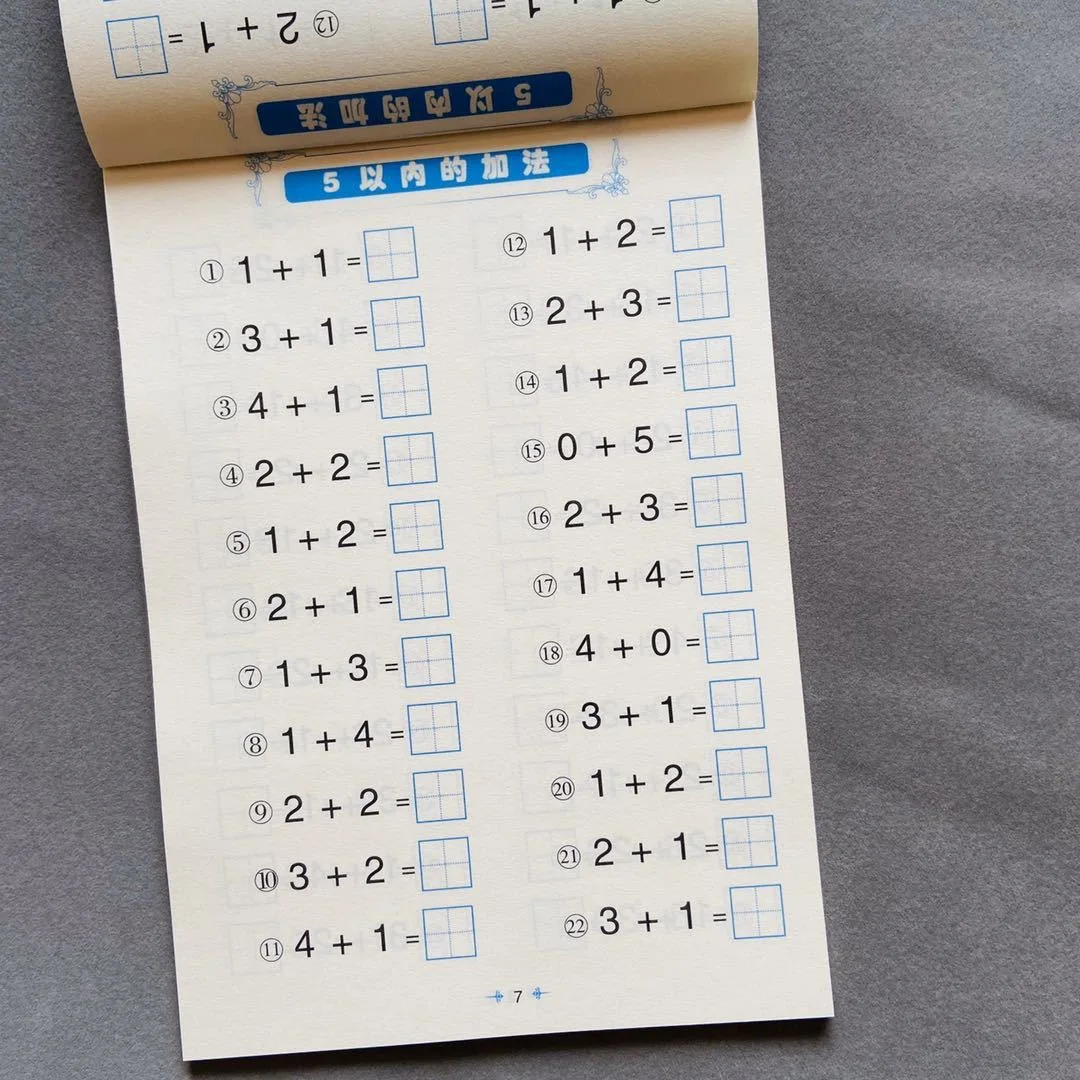 ⑫ 2 + 1 =
5 以内的加法
5 以内的加法
① 1 + 1 =
② 3 + 1 =
③ 4 + 1 =
④ 2 + 2 =
⑤ 1 + 2 =
⑥ 2 + 1 =
⑦ 1 + 3 =
⑧ 1 + 4 =
⑨ 2 + 2 =
⑩ 3 + 2 =
⑪ 4 + 1 =
⑫ 1 + 2 =
⑬ 2 + 3 =
⑭ 1 + 2 =
⑮ 0 + 5 =
⑯ 2 + 3 =
⑰ 1 + 4 =
⑱ 4 + 0 =
⑲ 3 + 1 =
⑳ 1 + 2 =
㉑ 2 + 1 =
㉒ 3 + 1 =
7